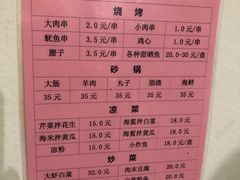 烧烤
大肉串 2.0元/串 小肉串 1元/串
鱿鱼串 3.5元/串 鸡心 1元/串
腰子 3.5元/串 各种甜晒鱼 20.0-30元/盘
砂锅
大肠 羊肉 丸子 甜渣 海鲜
35元 35元 35元 35元 35元
凉菜
芹菜拌花生 15.0元 海蜇拌白菜 18.0元
海米拌黄瓜 15.0元 海蜇拌黄瓜 18.0元
凉粉 15.0元 小炸鱼 18.0元/
炒菜
大虾白菜 32.0元 肉末豆腐 20.0元
20.0元